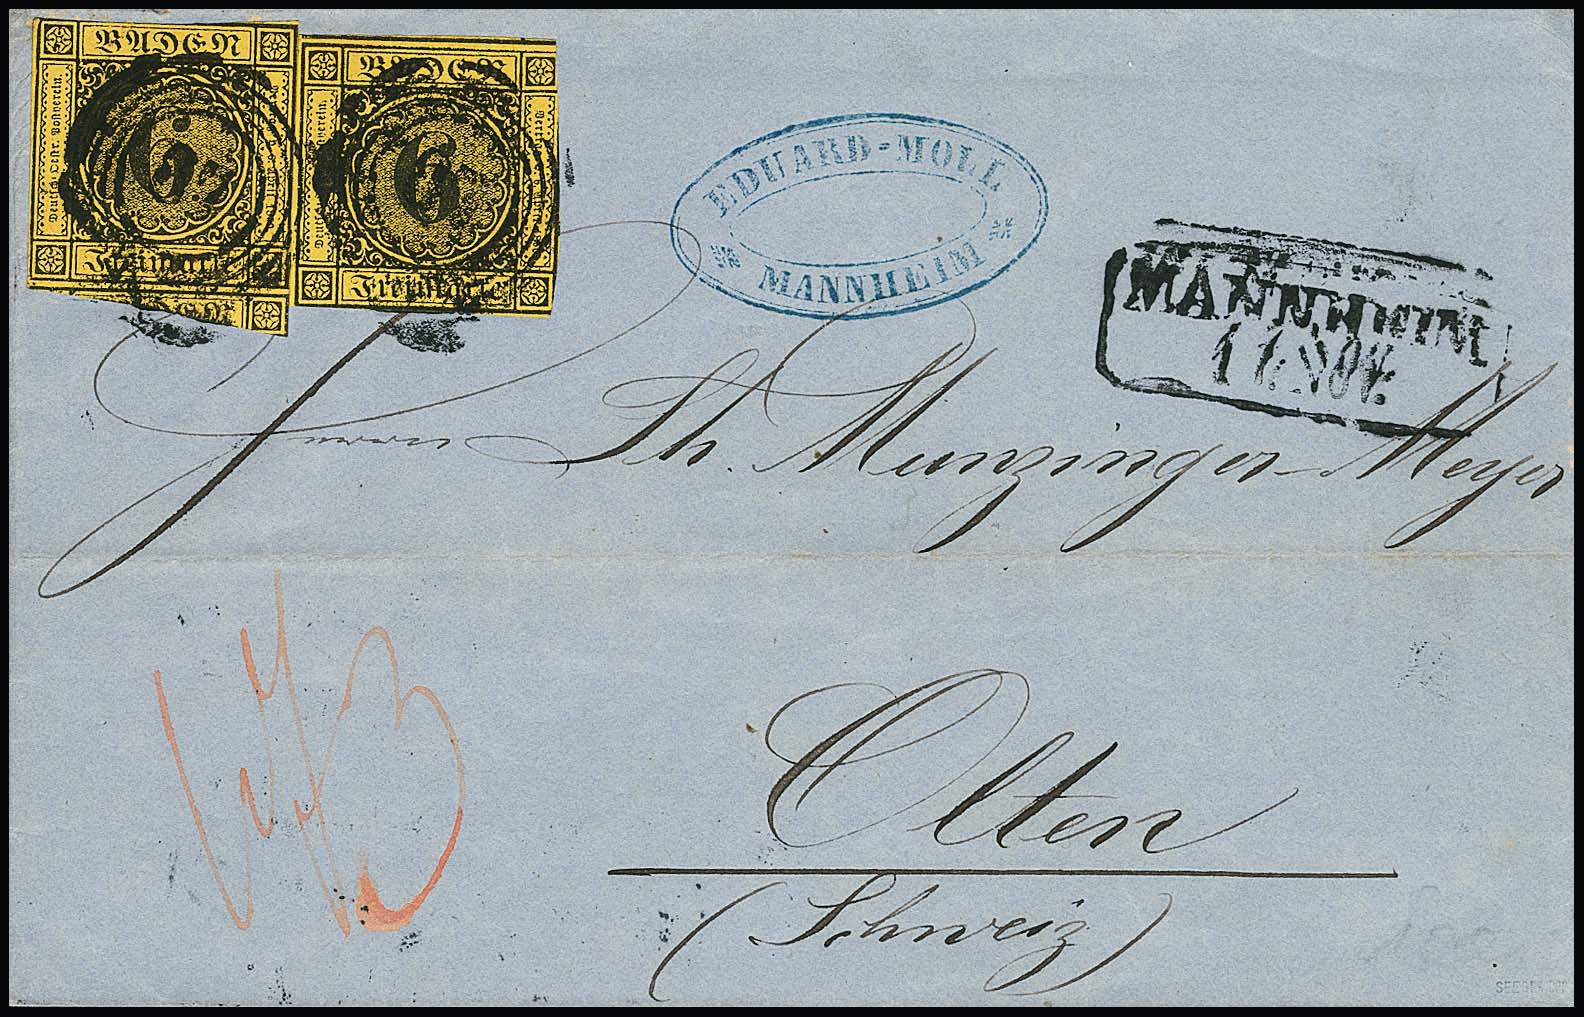 BADEN
6
Deutsch-Oestr. Postverein.
Freimarke
BADEN
6
Freimarke
EDUARD-MOLL
MANNHEIM
MANNHEIM
11 NOV.
Herrn Th. Munzinger-Meyer
Olten
(Schweiz)